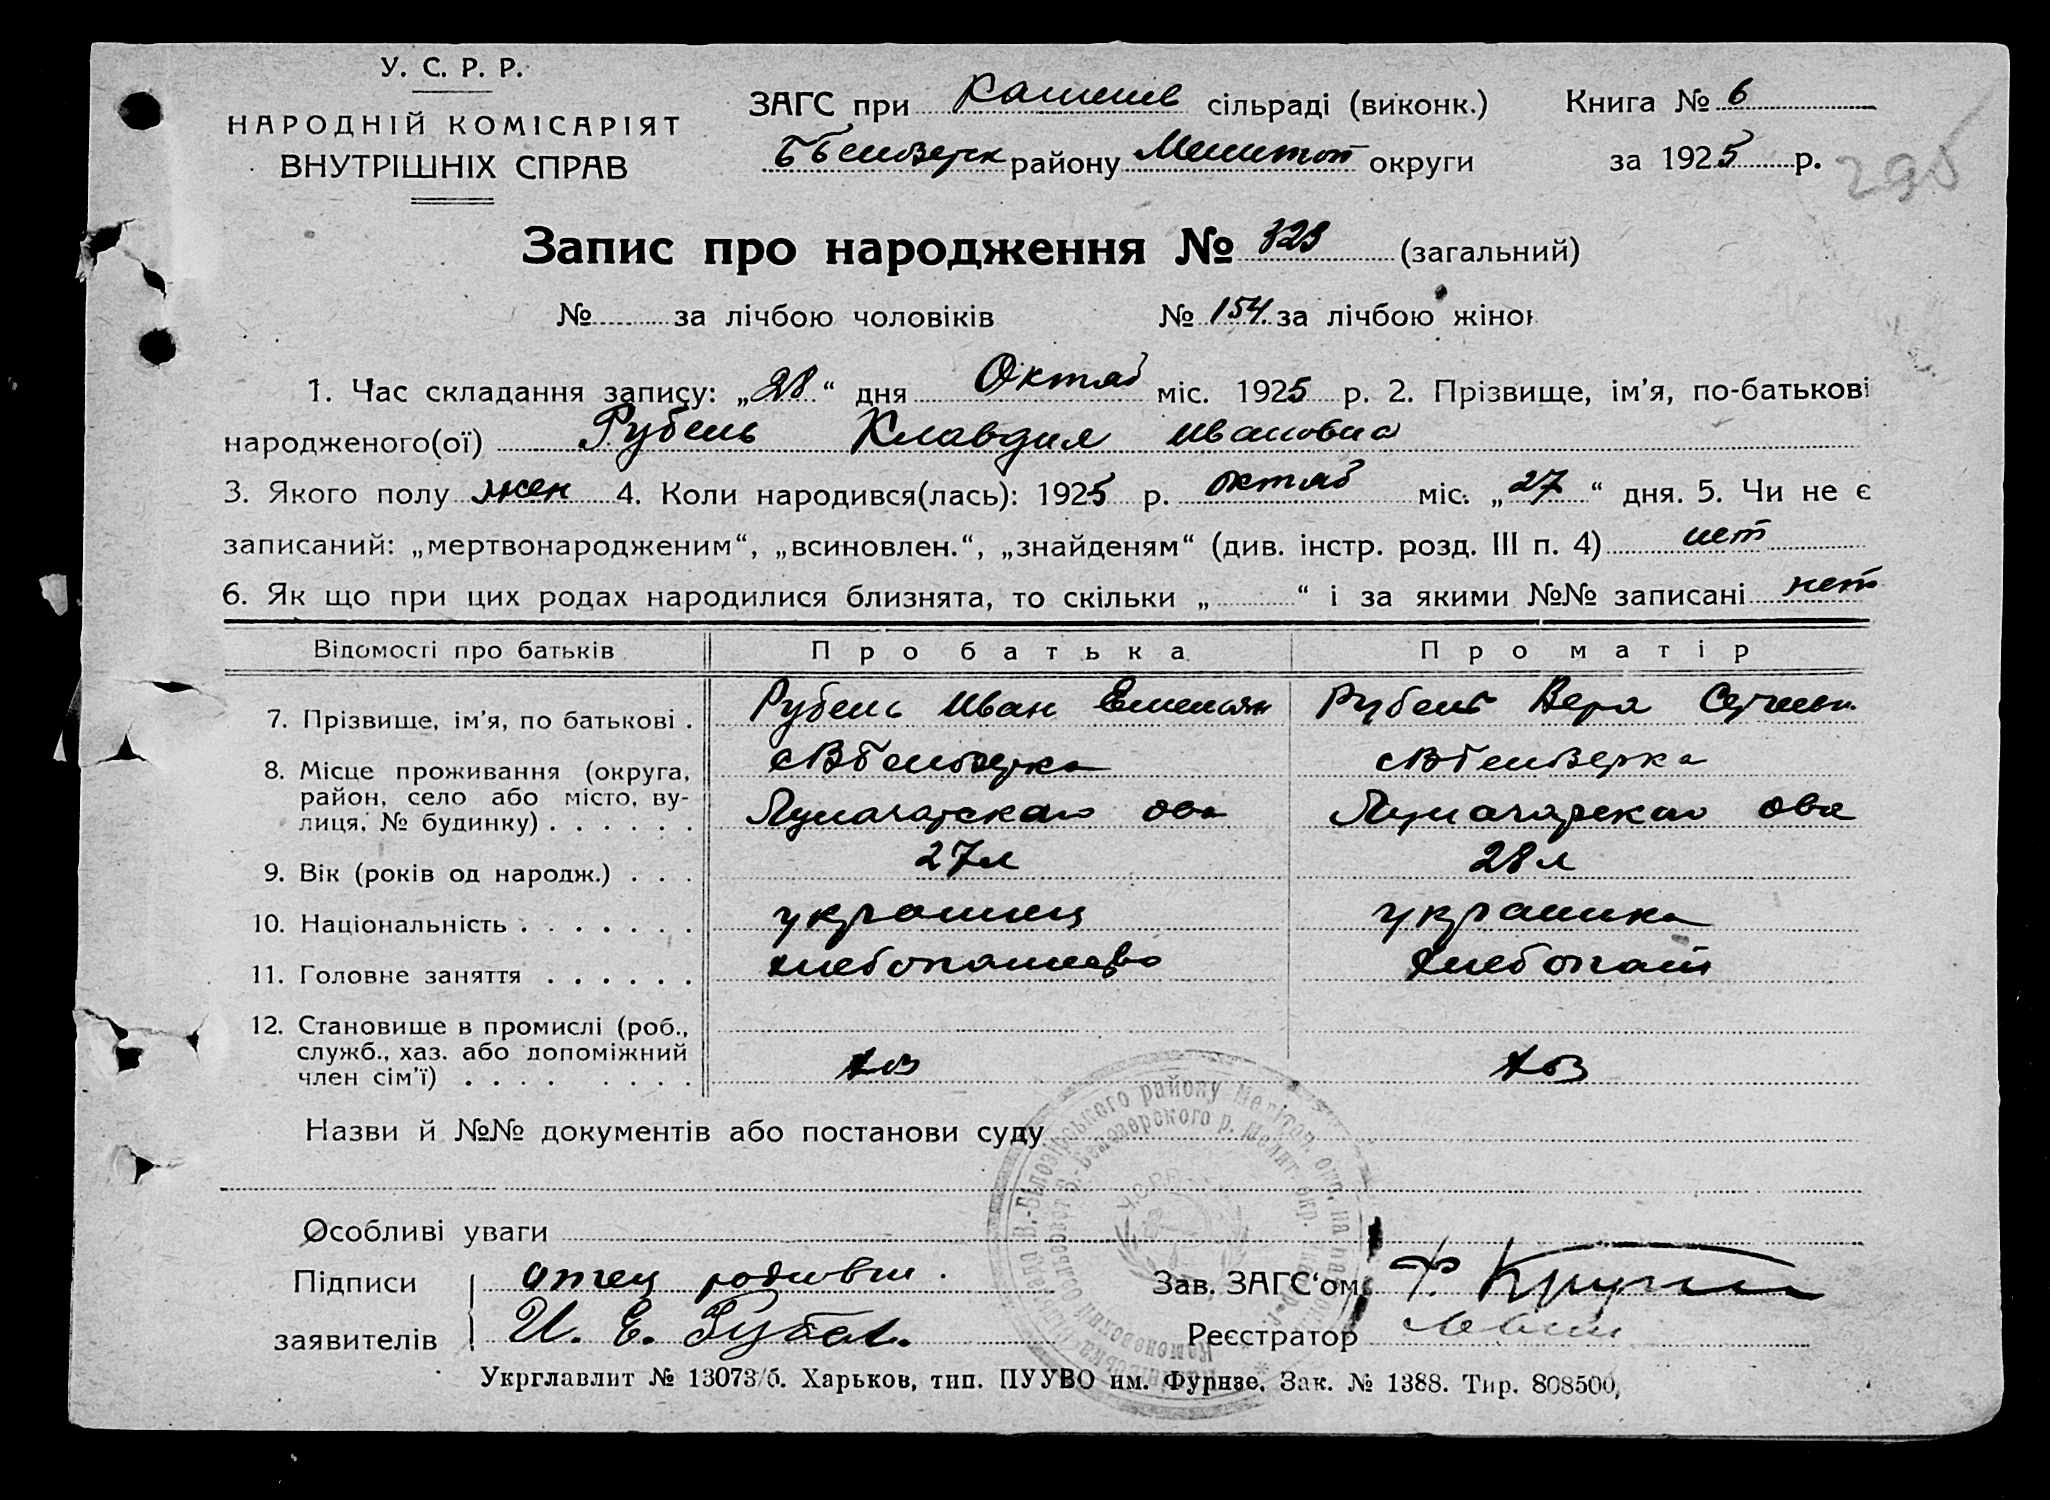 У. С. Р. Р.
НАРОДНІЙ КОМІСАРІЯТ
ВНУТРІШНІХ СПРАВ
ЗАГС при сільраді (виконк.) Книга № 6
району Мелитоп округи за 1925 р.
295
Запис про народження № 323 (загальний)
№ за лічбою чоловіків № 154. за лічбою жінок
1. Час складання запису: „28“ дня Октяб міс. 1925 р. 2. Прізвище, ім’я, по-батькові
народженого(ої) Рубель Клавдия Ивановна
3. Якого полу жен 4. Коли народився(лась): 1925 р. октяб міс. „27“ дня. 5. Чи не є
записаний: „мертвонародженим“, „всиновлен.“, „знайденям“ (див. інстр. розд. III п. 4) нет
6. Як що при цих родах народилися близнята, то скільки „ “ і за якими №№ записані нет
Відомості про батьків Про батька Про матір
7. Прізвище, ім’я, по батькові . Рубель Иван Емельян Рубель Вера Сергеевн.
8. Місце проживання (округа, район, село або місто, вулиця, № будинку) . . . . . . сВБелозерка сВБелозерка
Луначарскаго ова Луначарскаго ова
9. Вік (років од народж.) . . . 27л 28л
10. Національність . . . . . . . украинец украинка
11. Головне заняття . . . . . . хлебопашество хлебопаш
12. Становище в промислі (роб., служб., хаз. або допоміжний член сім’ї) . . . . . . . . хоз хоз
Назви й №№ документів або постанови суду
Особливі уваги
Підписи заявителів отец родивш.
И. Е. Рубель.
Зав. ЗАГС‘ом
Реєстратор
Укрглавлит № 13073/б. Харьков, тип. ПУУВО им. Фурнзе. Зак. № 1388. Тир. 808500,